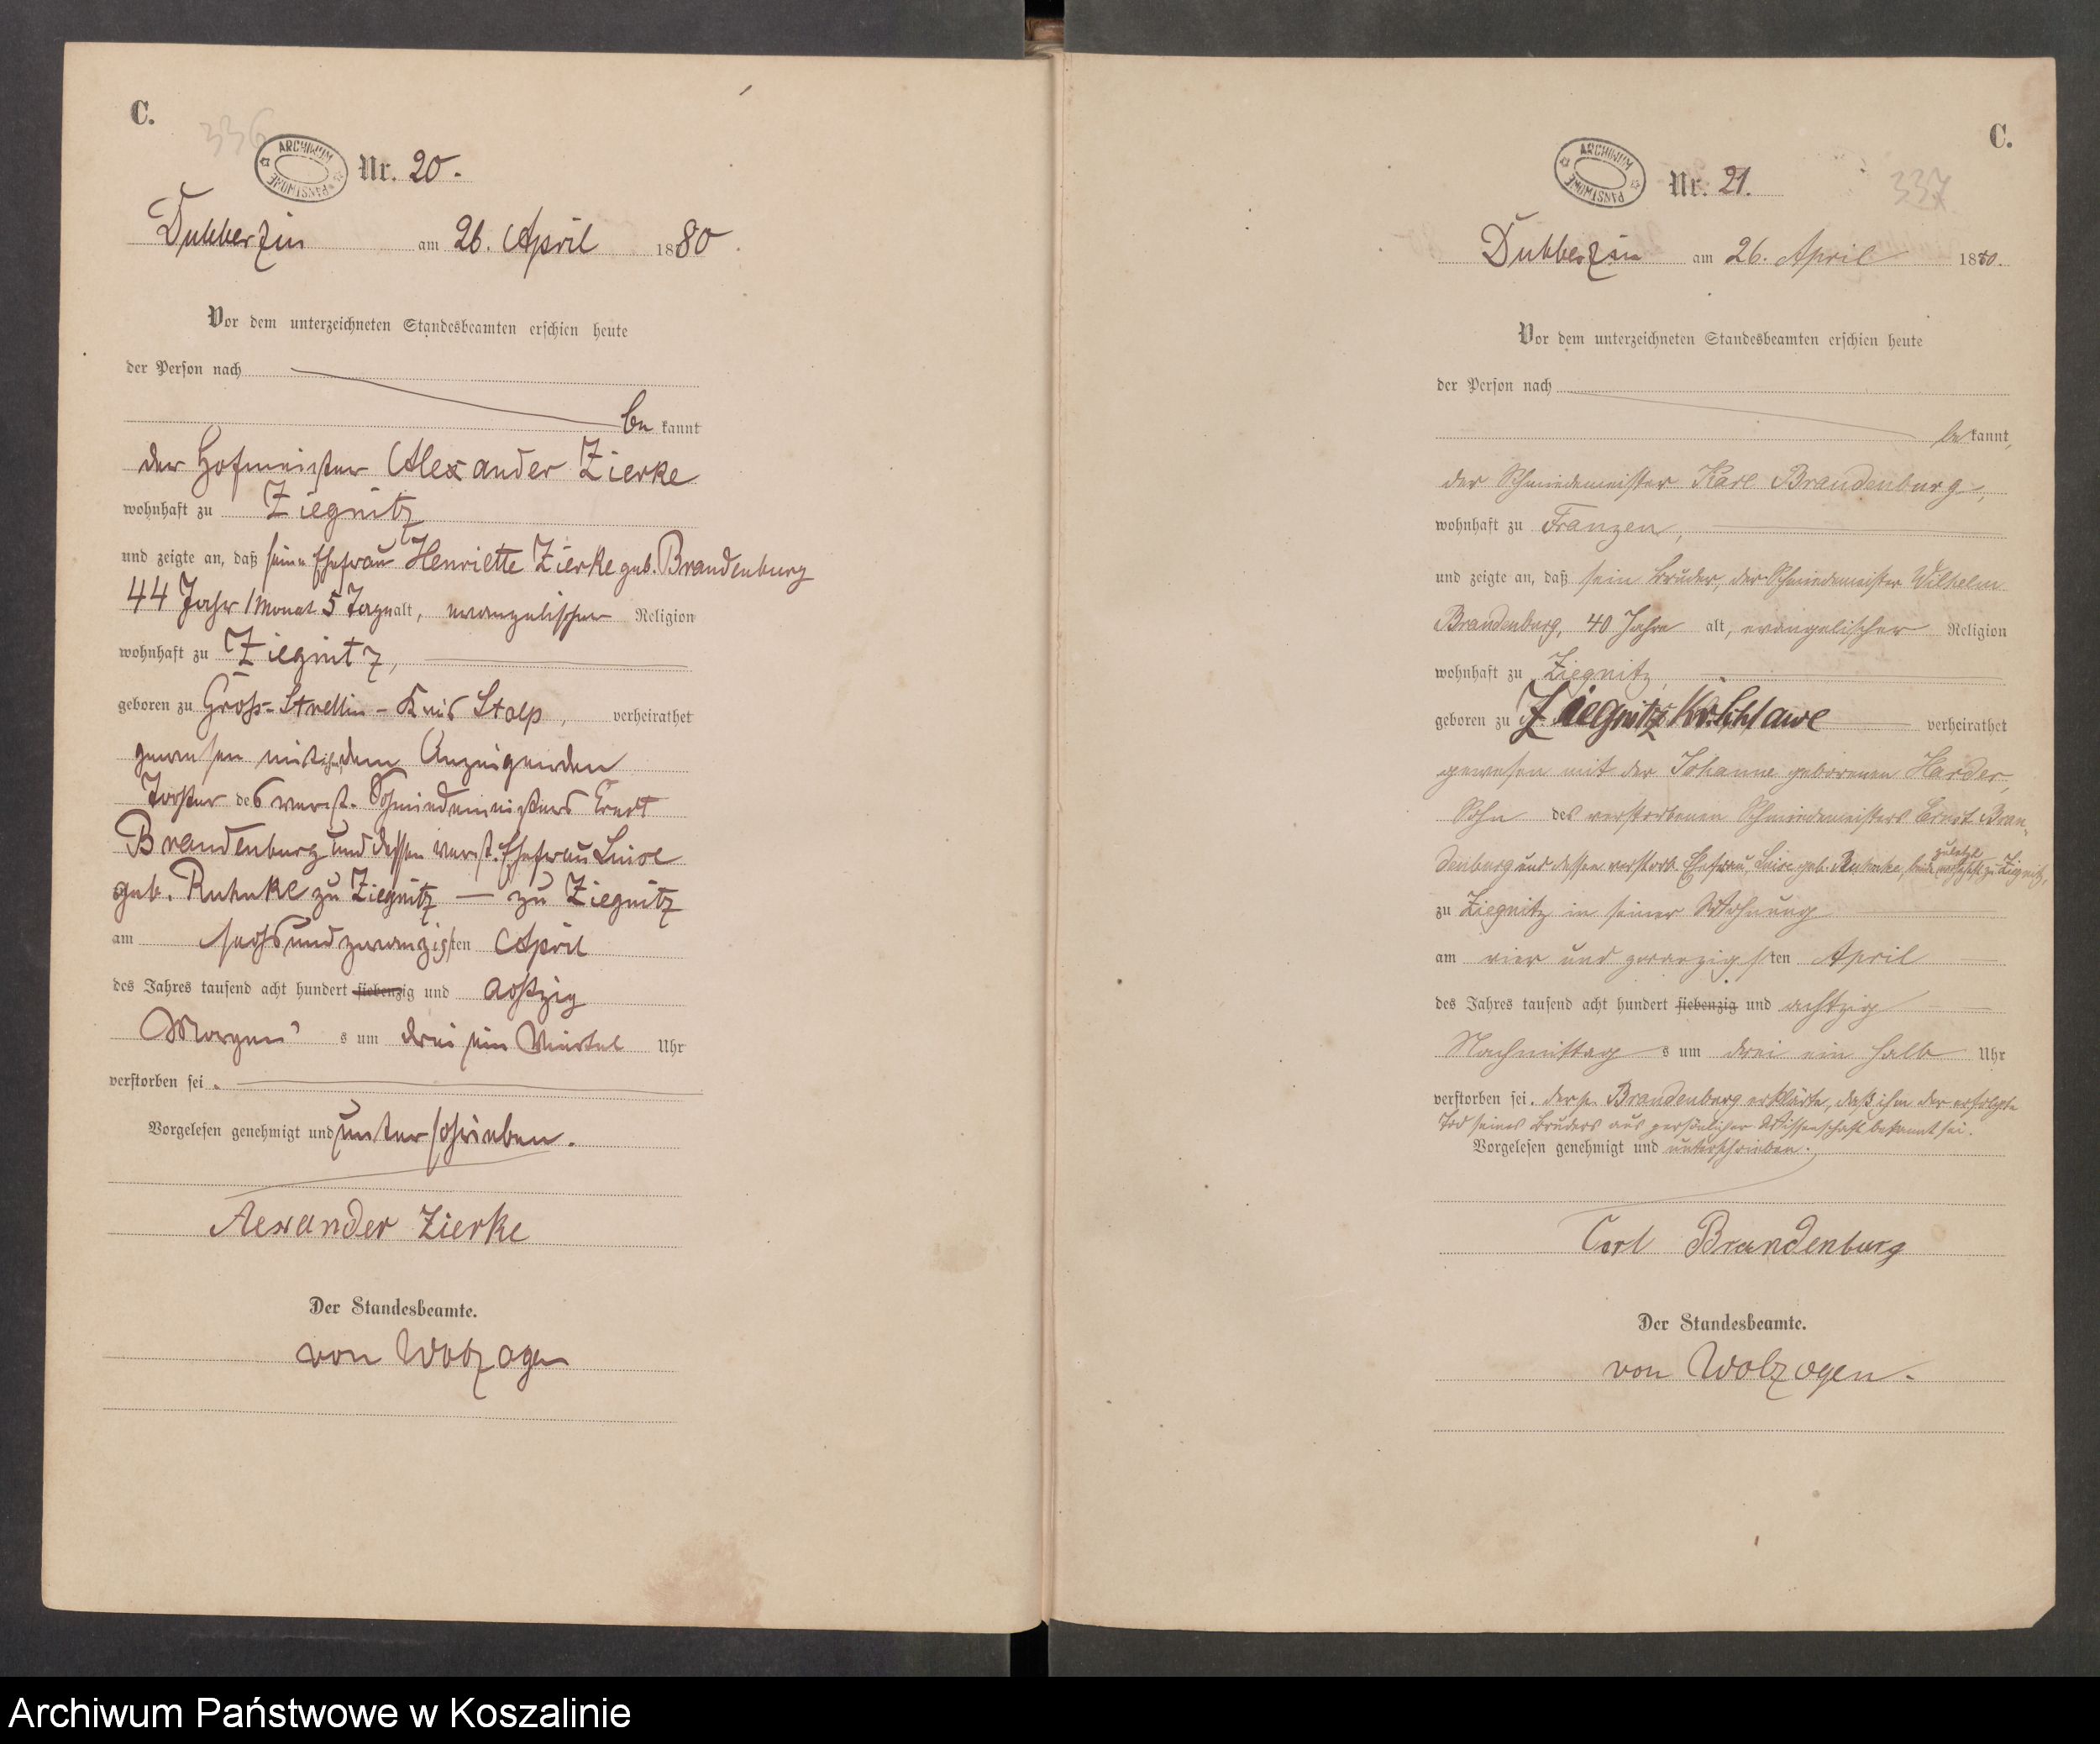 C.
336
ARCHIWUM PAŃSTWOWE
Nr. 20.
Dubberzin am 26. April 1880.
Vor dem unterzeichneten Standesbeamten erschien heute
der Person nach
be kannt
der Hofmeister Alexander Zierke
wohnhaft zu Ziegnitz
und zeigte an, daß seine Ehefrau Henriette Zierke geb. Brandenburg
44 Jahr 1 Monat 5 Tage alt, evangelischer Religion
wohnhaft zu Ziegnitz,
geboren zu Gross-Strellin - Kreis Stolp, verheirathet
gewesen mit dem Anzeigenden
Tochter des verst. Schmiedemeisters Ernst
Brandenburg und dessen verst. Ehefrau Luise
geb. Ruhnke zu Ziegnitz — zu Ziegnitz
am sechsundzwanzigsten April
des Jahres tausend acht hundert siebenzig und achtzig
Morgens um drei ein Viertel Uhr
verstorben sei.
Vorgelesen genehmigt und unterschrieben.
Alexander Zierke
Der Standesbeamte.
von Wolzogen
C.
337
ARCHIWUM PAŃSTWOWE
Nr. 21.
Dubberzin am 26. April 1880.
Vor dem unterzeichneten Standesbeamten erschien heute
der Person nach
be kannt,
der Schmiedemeister Karl Brandenburg,
wohnhaft zu Franzen,
und zeigte an, daß sein Bruder, der Schmiedemeister Wilhelm
Brandenburg, 40 Jahre alt, evangelischer Religion
wohnhaft zu Ziegnitz,
geboren zu Ziegnitz Kr. Schlawe verheirathet
gewesen mit der Johanne geborenen Harder,
Sohn des verstorbenen Schmiedemeisters Ernst Bran-
denburg und dessen verstorb. Ehefrau, Luise geb. Ruhnke, beide zuletzt wohnhaft zu Ziegnitz,
zu Ziegnitz in seiner Wohnung
am vier und zwanzigsten April
des Jahres tausend acht hundert siebenzig und achtzig
Nachmittags um drei ein halb Uhr
verstorben sei. Der p. Brandenburg erklärte, daß ihm der erfolgte
Tod seines Bruders aus persönlicher Wissenschaft bekannt sei.
Vorgelesen genehmigt und unterschrieben.
Carl Brandenburg
Der Standesbeamte.
von Wolzogen.
Archiwum Państwowe w Koszalinie